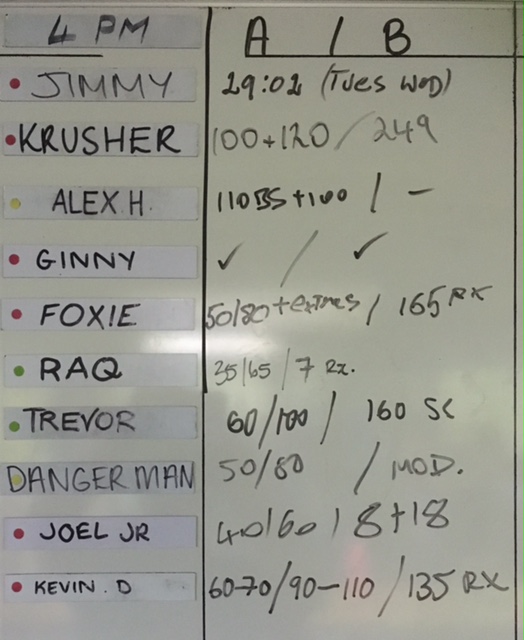 4 PM A / B
JIMMY 29:02 (TUES WED)
KRUSHER 100+120 / 249
ALEX.H. 110BS+100 / -
GINNY ✓ / ✓
FOXIE 50/80+extras / 165 RX
RAQ 35/65 / 7 Rx.
TREVOR 60/100 / 160 SC
DANGERMAN 50/80 / MOD.
JOEL JR 40/60 / 8+18
KEVIN. D 60-70/90-110 / 135 RX